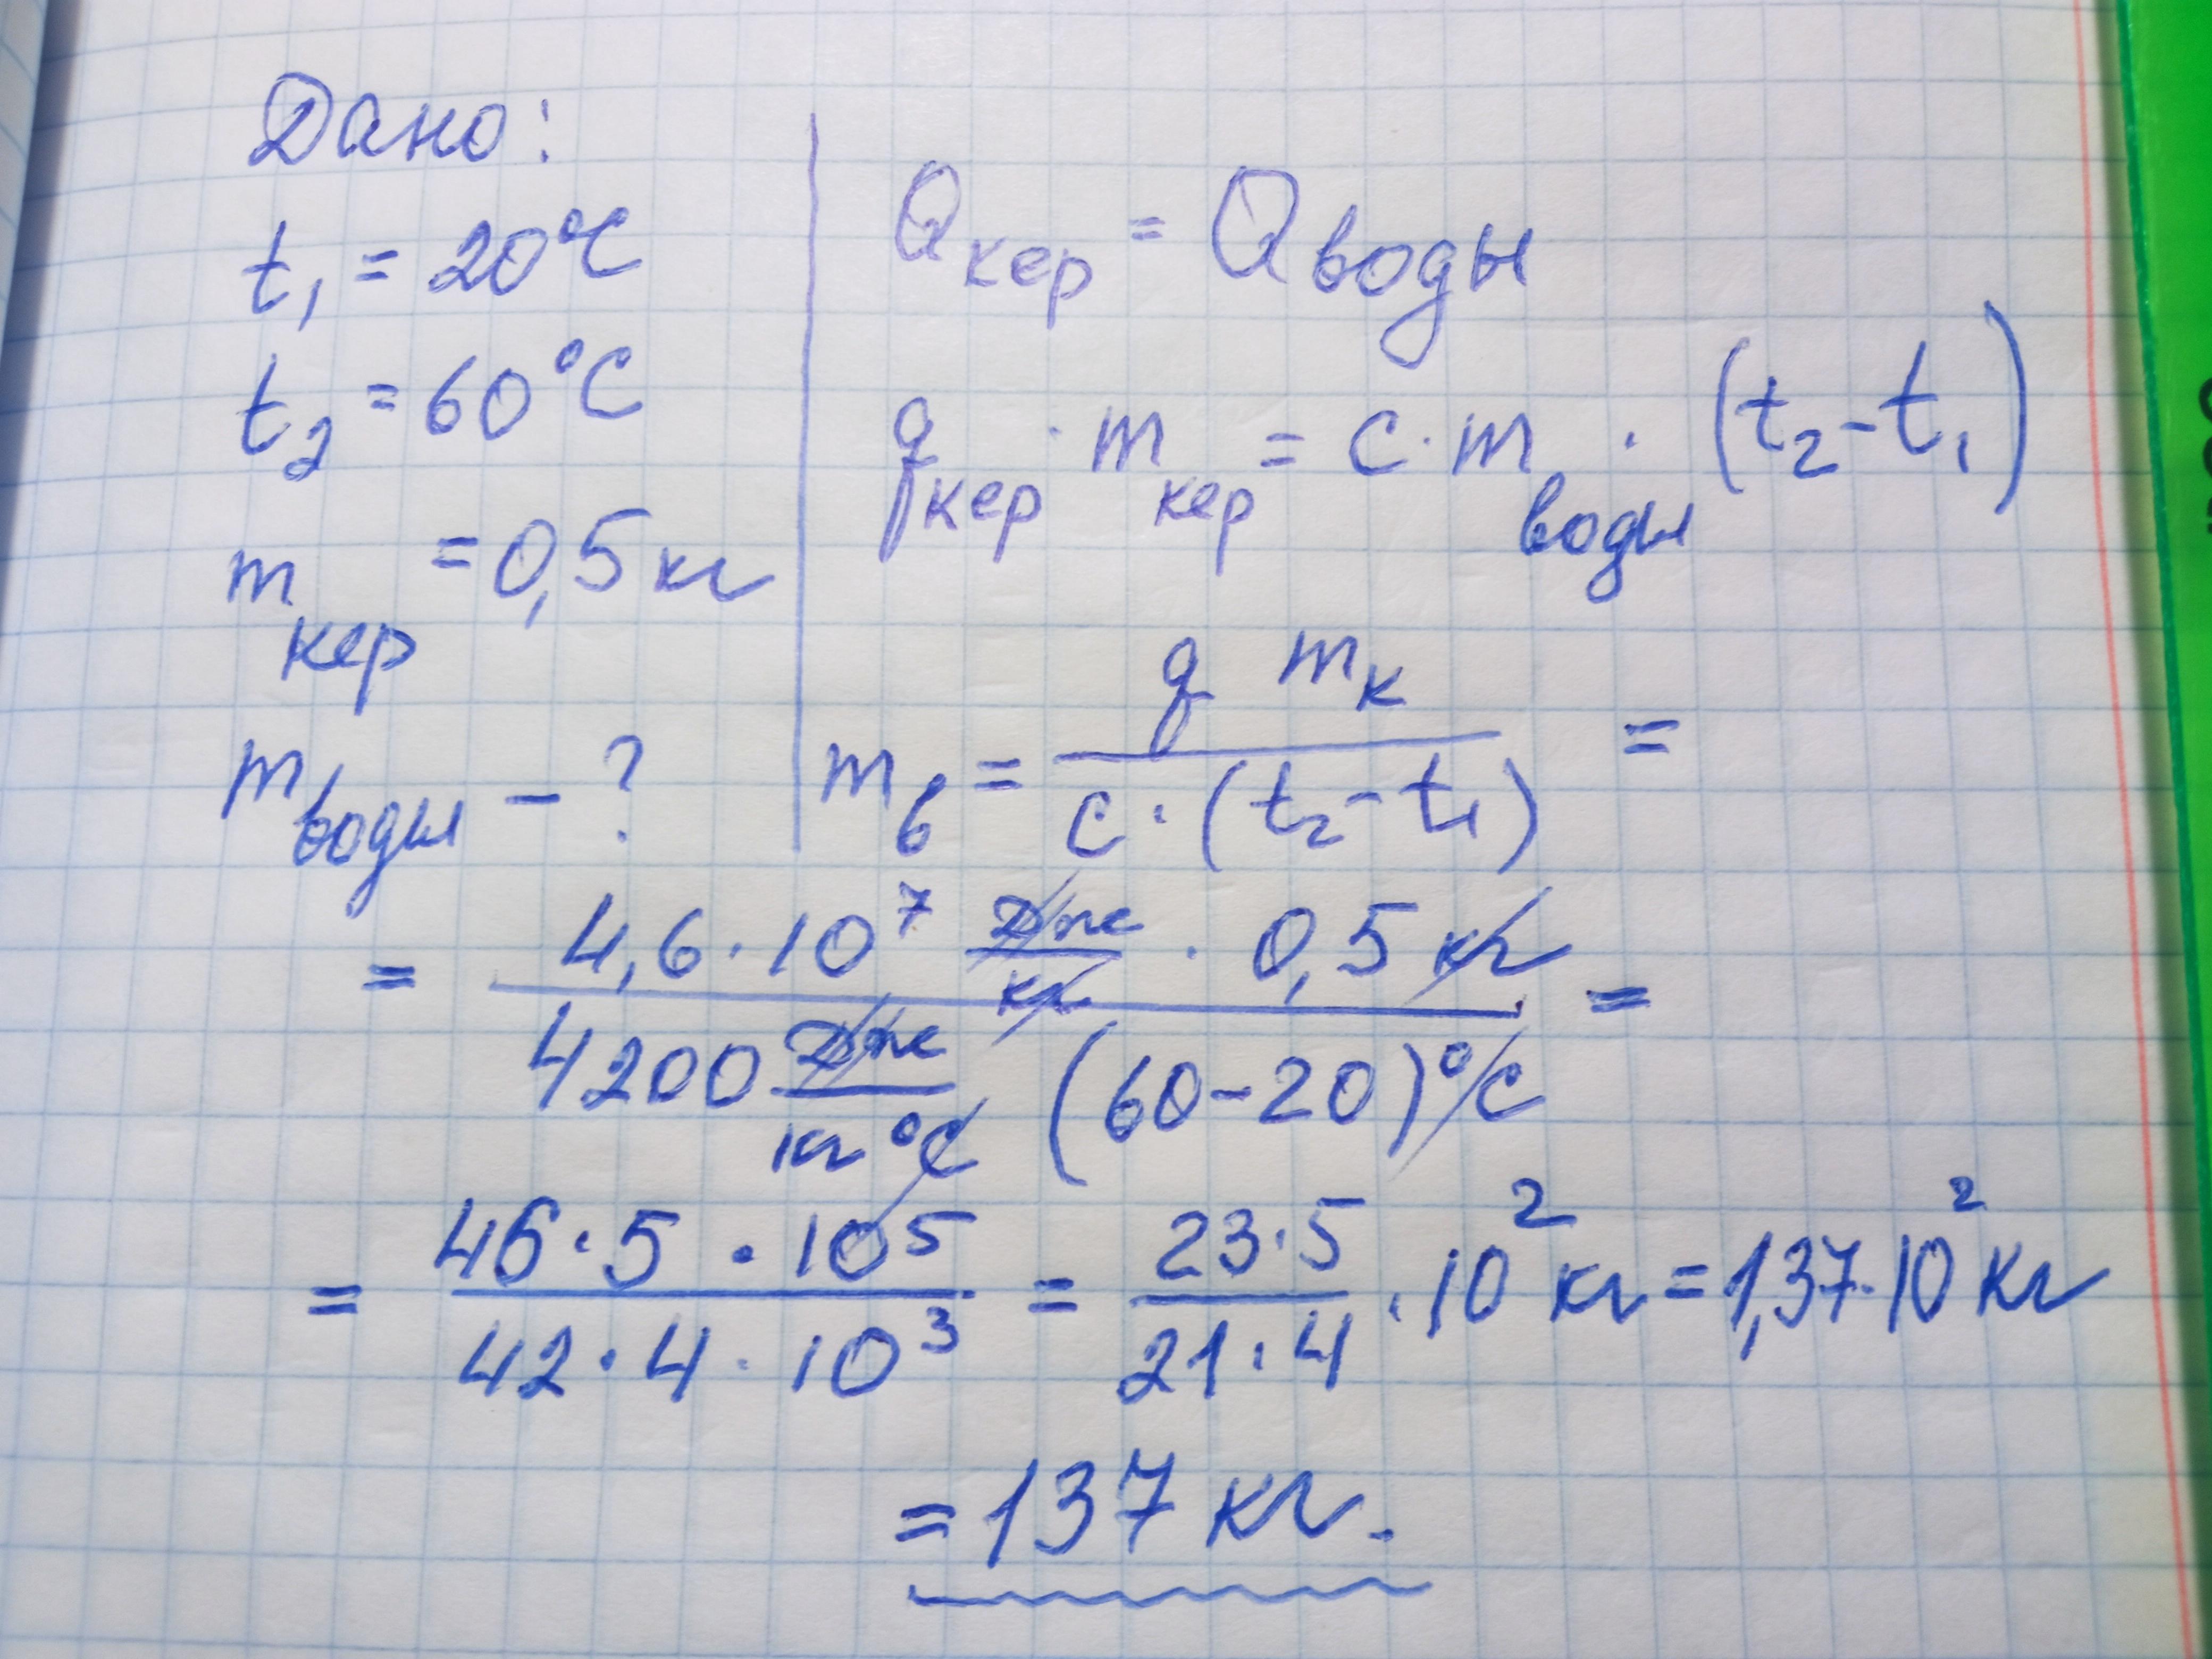 Дано:
t₁ = 20°C
t₂ = 60°C
m кер = 0,5 кг
m воды – ?
Q кер = Q воды
q кер · m кер = c · m воды · (t₂ – t₁)
m в = q m к / c · (t₂ – t₁) =
= 4,6 · 10⁷ Дж/кг · 0,5 кг / 4200 Дж/кг °C (60 – 20) °C =
= 46 · 5 · 10⁵ / 42 · 4 · 10³ = 23 · 5 / 21 · 4 · 10² кг = 1,37 · 10² кг
= 137 кг.